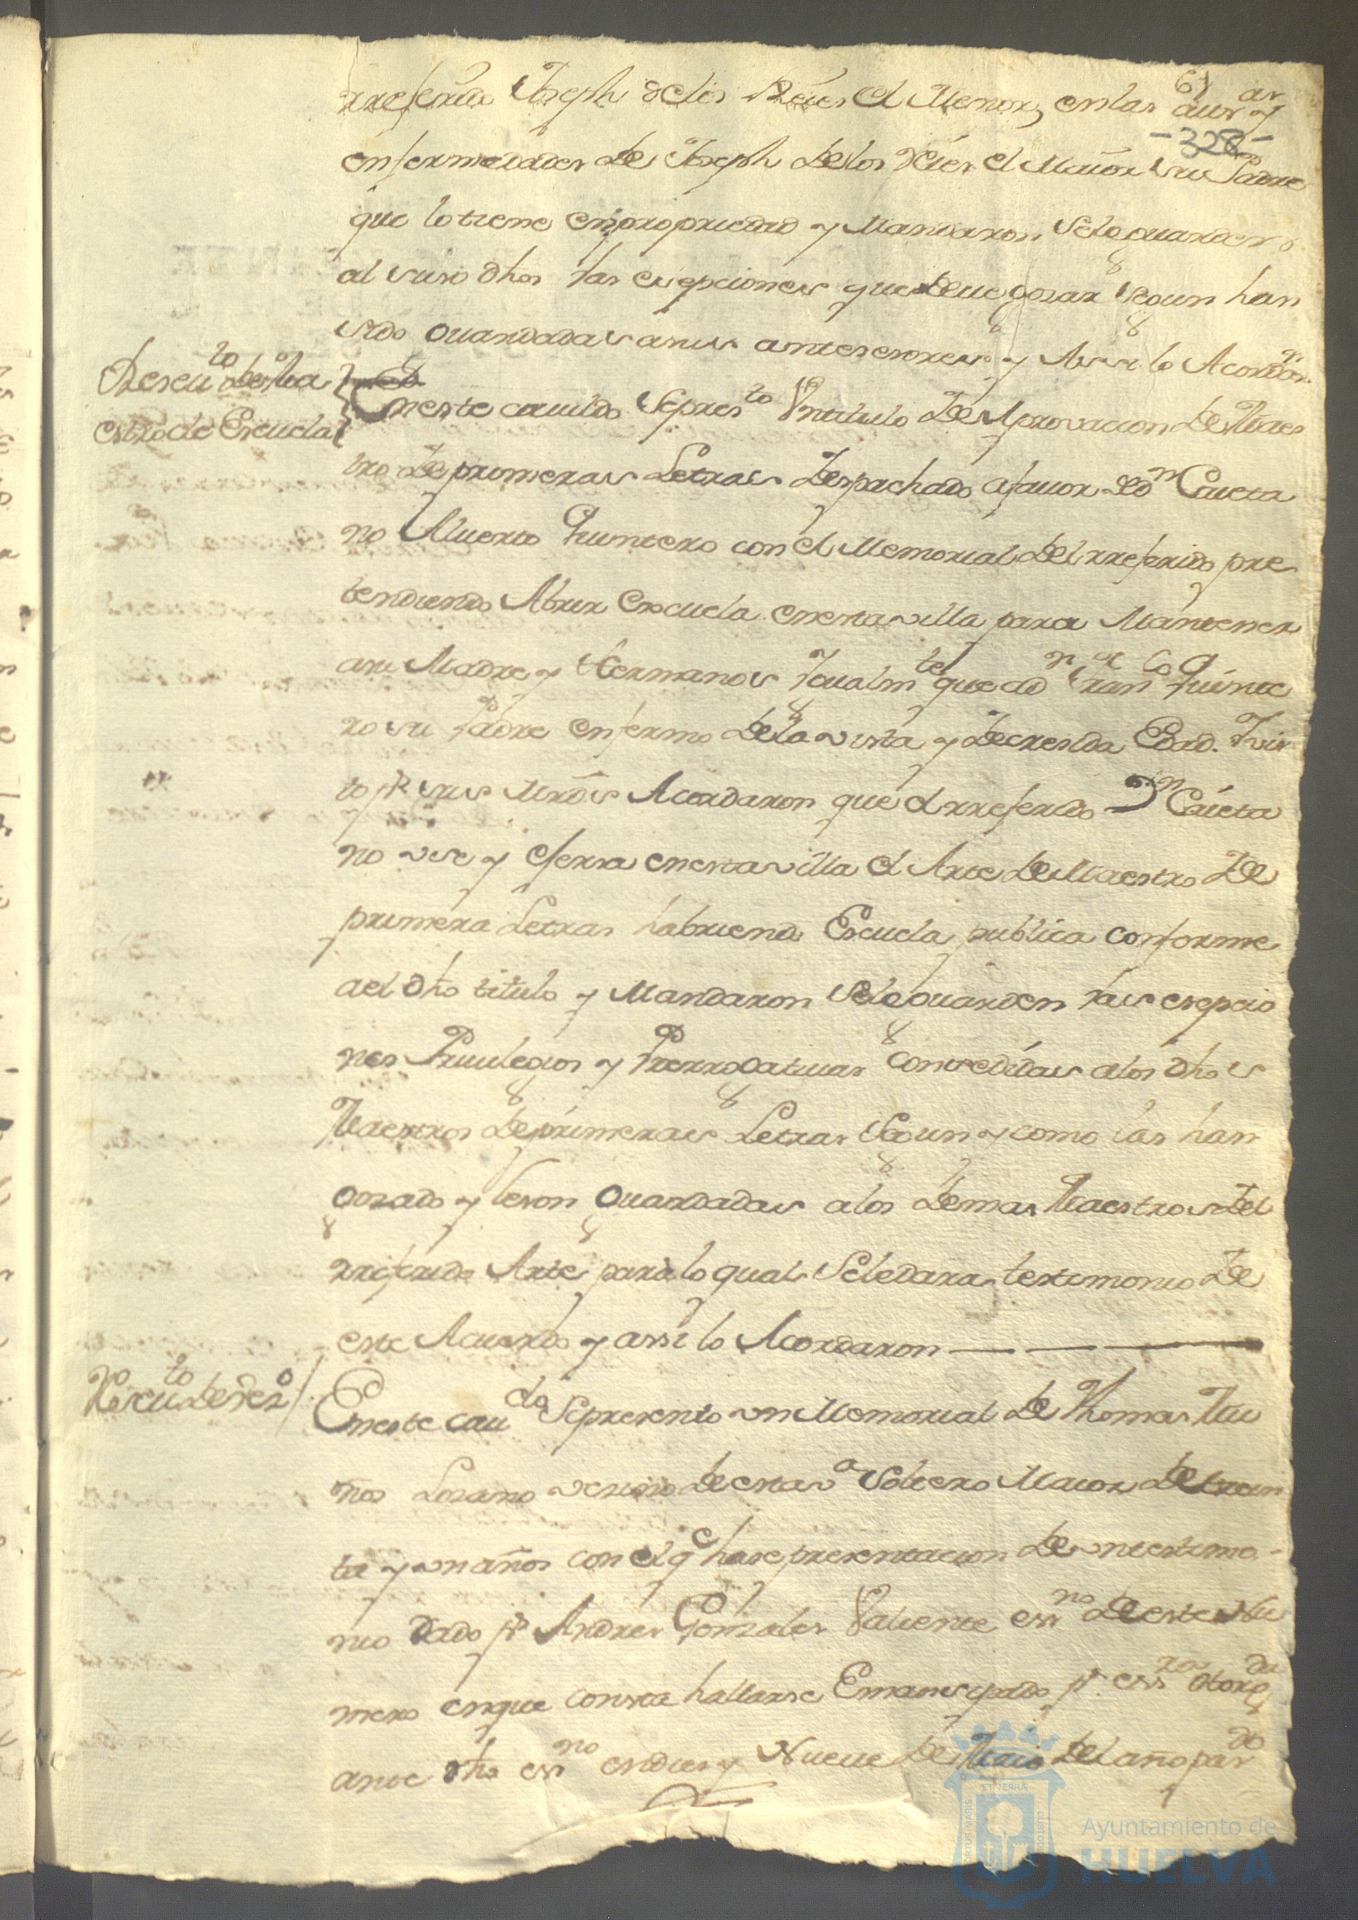 61
-328-
rreferido Joseph de los Reies el Menor, en las aus.as y
enfermedades de Joseph de los Reies el Maior su Padre
que lo tiene en propriedad y Mandaron se le guarden
al suso dho las esepciones que deue gosar segun han
sido guardadas a sus antesesores y Assi lo Acordaron
Reseuto. de Ma
estro de Escuela
En este cauildo se presto. Un titulo de Aprovacion de Maes
tro de primeras Letras despachado a fauor de Dn Caieta
no Alverto Quintero con el Memorial del rreferido pre
tendiendo Abrir escuela en esta villa para Mantener
a su Madre y Hermanos Igualmte que a Dn Franco Quinte
ro su Padre enfermo de la vista y de cresida Edad. Vis
to pr sus mrds Acordaron que el rreferido Dn Caieta
no use y esersa en esta villa el Arte de Maestro de
primera Letras habriendo Escuela publica conforme
a el dho titulo y Mandaron se le guarden las esepcio
nes Priuilegios y Prerrogatiuas consedidas a los dhos
Maestros de primeras Letras segun y como las han
gozado y leson guardadas a los demas Maestros del
rreferido Arte para lo qual se le dara testimonio de
este Acuerdo y assi lo Acordaron
Reseuto. de Vezo.
En este caudo se presento un Memorial de Thomas Mu
ños Lozano vesino de esta va soltero Maior de trein
ta y un años con el qe hase presentacion de un testimo-
nio dado pr Andres Gonzales Valiente essno de este Nu
mero en que consta hallarse Emansipado pr essra otorgda
ante dho essno en dies y Nueue de Maio del año pasdo
Ayuntamiento de
HUELVA